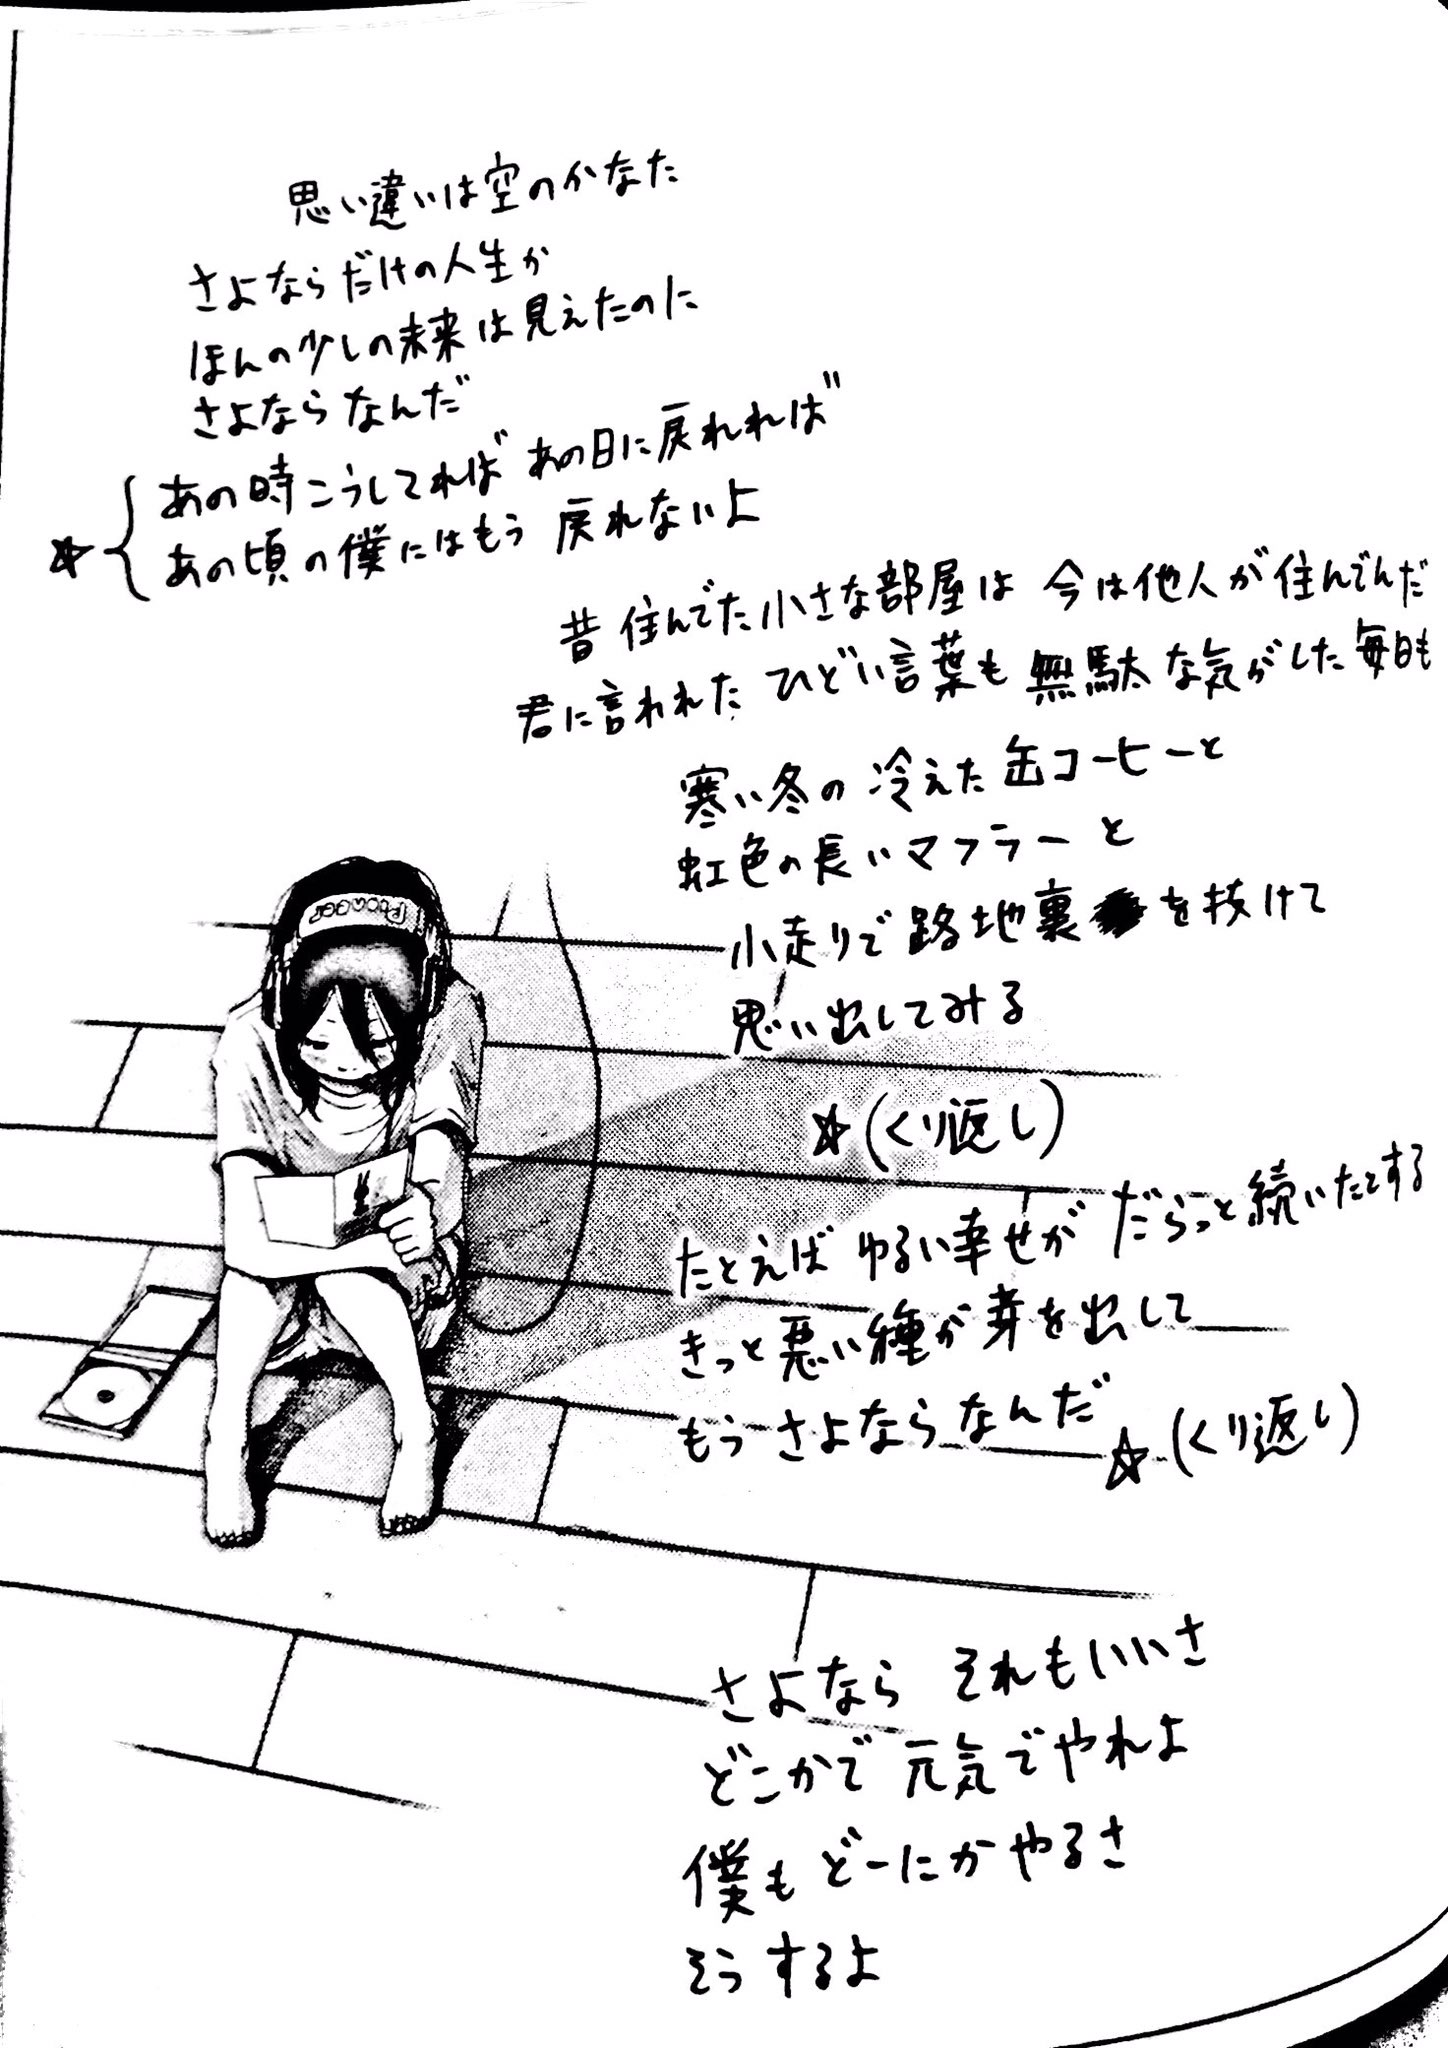 思い違いは空のかなた
さよならだけの人生か
ほんの少しの未来は見えたのに
さよならなんだ
☆{ あの時こうしてれば あの日に戻れれば
あの頃の僕にはもう 戻れないよ
昔 住んでた小さな部屋は 今は他人が住んでんだ
君に言われた ひどい言葉も 無駄な気がした毎日も
寒い冬の 冷えた缶コーヒーと
虹色の長いマフラーと
小走りで 路地裏を抜けて
思い出してみる
☆(くり返し)
たとえば ゆるい幸せが だらっと続いたとする
きっと悪い種が芽を出して
もう さよならなんだ
☆(くり返し)
Pioneer
さよなら それもいいさ
どこかで 元気でやれよ
僕も どーにかやるさ
そうするよ